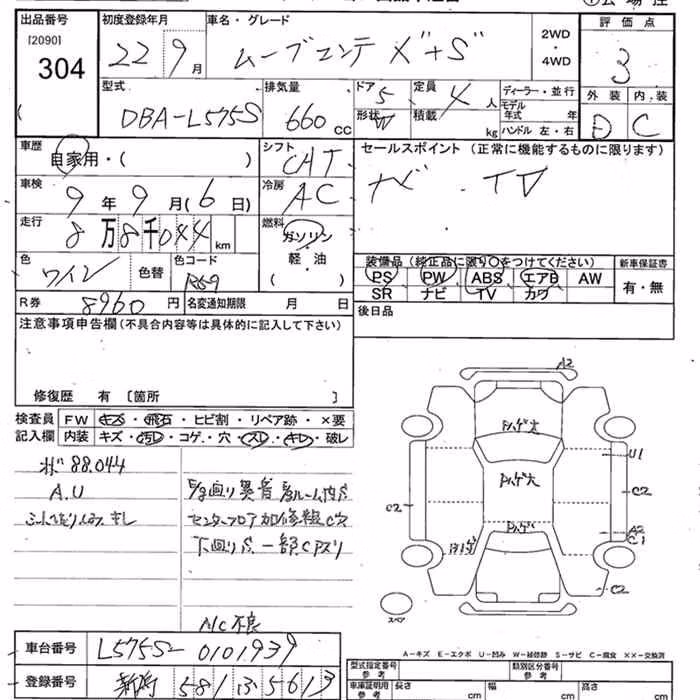 出品番号 初度登録年月 車名・グレード 評価点
[2090]
304
22 9月
ムーブコンテ X"+S"
2WD
・
4WD
3
外装 内装
D C
型式 排気量 ドア 定員 ディーラー・並行
DBA-L575S
660 cc
5
形状 積載 kg
4 人
モデル
年式 年
ハンドル 左・右
車歴
自家用・( )
シフト
CAT
セールスポイント (正常に機能するものに限ります)
ナビ . TV
車検
9年9月(6日)
冷房
AC
走行
8万8千044 km
燃料
ガソリン
軽・油
( )
色
ワイン
色替
色コード
R59
装備品 (純正品に限り○をつけてください) 新車保証書
PS PW ABS エアB AW
SR ナビ TV カワ
有・無
R券 8960 円 名変通知期限 月 日
後日品
注意事項申告欄(不具合内容等は具体的に記入して下さい)
修復歴 有 [箇所 ]
検査員 FW キズ・飛石・ヒビ割・リペア跡・×要
記入欄 内装 キズ・汚レ・コゲ・穴・スレ・キレ・破レ
88.044
A.U
センターフロア加修跡
下回りS 一部C
A/C不良
A2
U1
C2
C2
A2
C1
C2
スペア
車台番号 L575S-0101939
登録番号 新潟 581 5613
A-キズ E-エクボ U-凹み W-補修跡 S-サビ C-腐食 ××-交換済
型式指定番号
参考
類別区分番号
参考
車庫証明用
参考
長さ cm 幅 cm 高さ cm